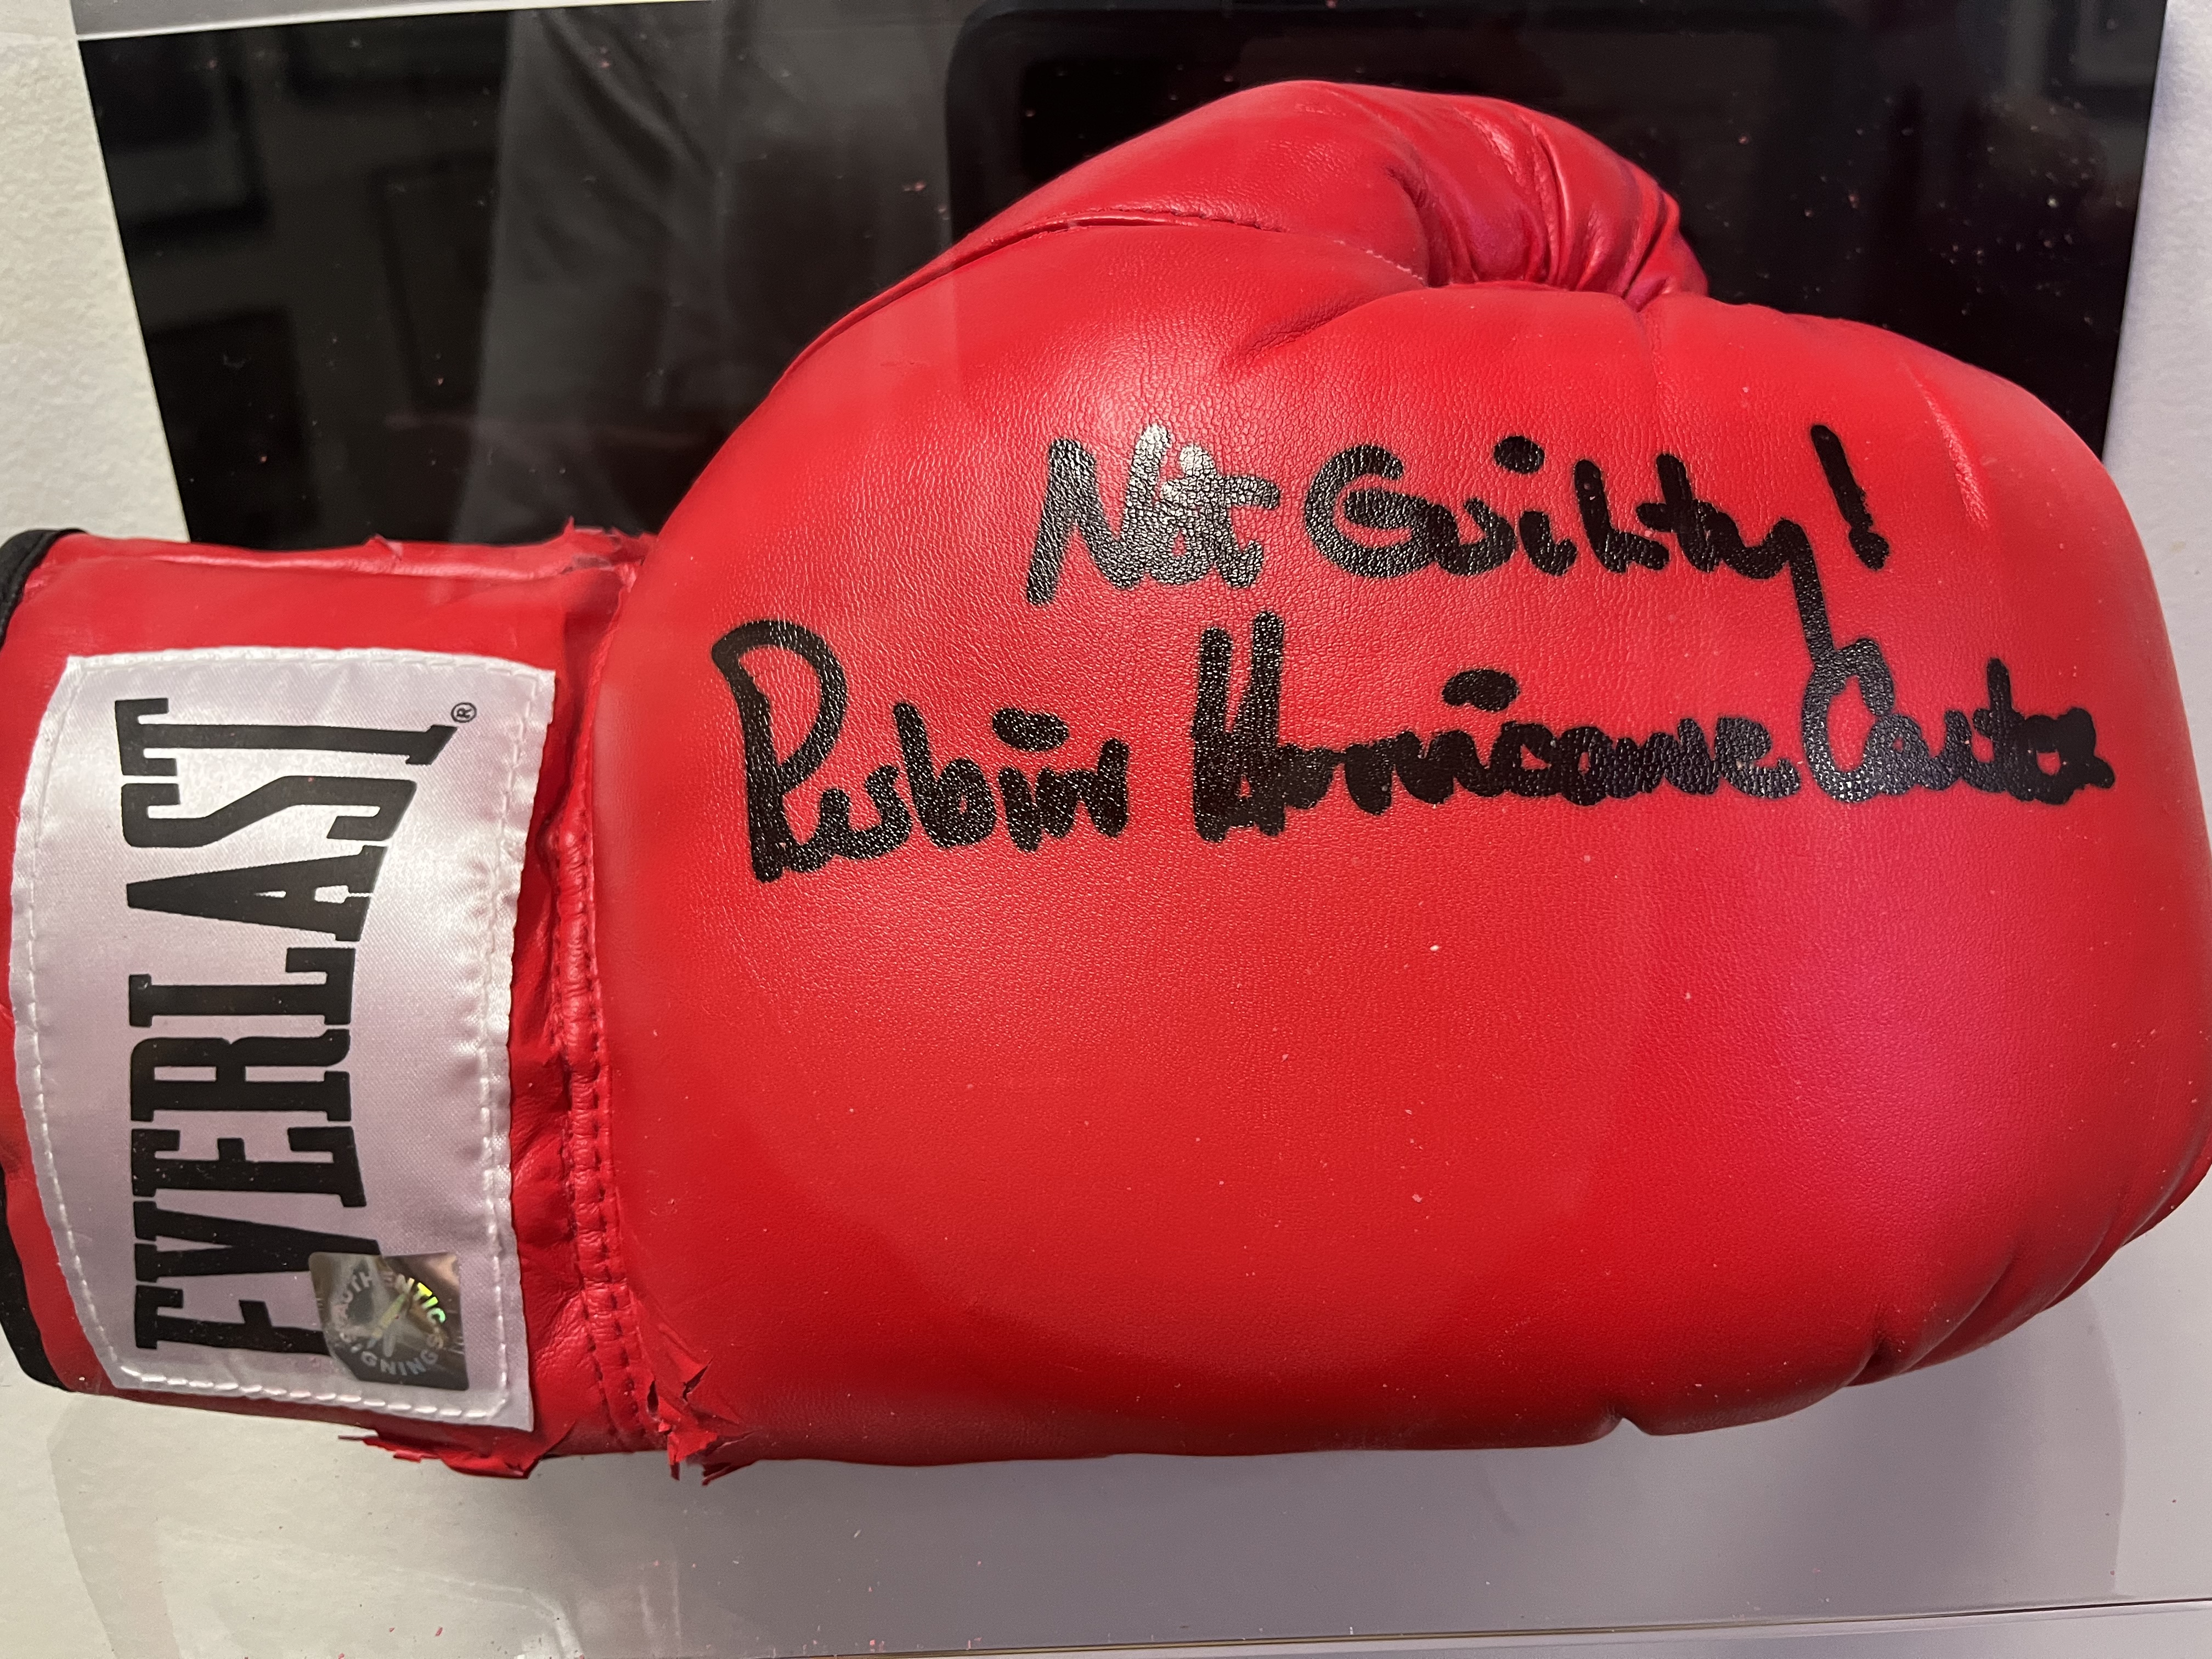 Not Guilty!
Rubin Hurricane Carter
EVERLAST®
AUTHENTIC
SIGNINGS